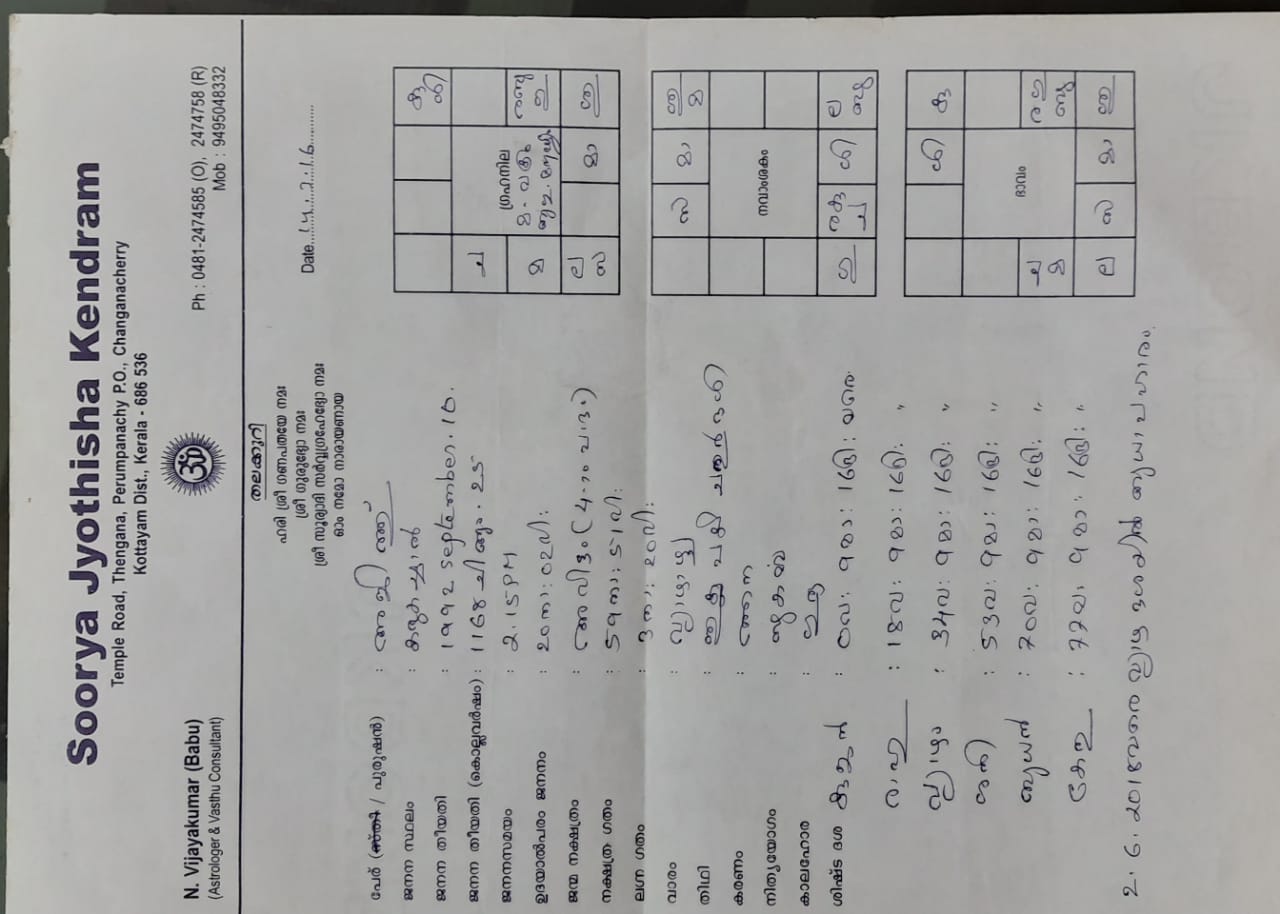 Soorya Jyothisha Kendram
Temple Road, Thengana, Perumpanachy P.O., Changanacherry
Kottayam Dist., Kerala - 686 536
N. Vijayakumar (Babu)
(Astrologer & Vasthu Consultant)
Ph : 0481-2474585 (O), 2474758 (R)
Mob : 9495048332
തലക്കുറി
ഹരി ശ്രീ ഗണപതയേ നമഃ
ശ്രീ ഗുരുഭ്യോ നമഃ
ശ്രീ സൂര്യാദി സർവ്വഗ്രഹേഭ്യോ നമഃ
ഓം നമോ നാരായണായ
Date 14.2.16
പേർ (സ്ത്രീ / പുരുഷൻ) :
ജനന സ്ഥലം :
ജനന തിയതി : 1992 September. 10.
ജനന തിയതി (കൊല്ലവർഷം) : 1168 ചിങ്ങം. 25
ജനനസമയം : 2.15 PM
ഉദയാൽപരം ജനനം : 20നാ: 02വി:
ജന്മ നക്ഷത്രം : അവിട്ടം (4-ാം പാദം)
നക്ഷത്ര ഗതം : 59നാ: 51വി:
ലഗ്ന ഗതം : 3നാ: 20വി:
വാരം : വ്യാഴാഴ്ച
തിഥി :
കരണം : ആന
നിത്യയോഗം : സുകർമ്മ
കാലഹോര :
ശിഷ്ട ദശ കുജൻ : 0വ: 9മാ: 16ദി: വരെ
രാഹു : 18വ: 9മാ: 16ദി: "
വ്യാഴം : 34വ: 9മാ: 16ദി: "
ശനി : 53വ: 9മാ: 16ദി: "
ബുധൻ : 70വ: 9മാ: 16ദി: "
കേതു : 77വ: 9മാ: 16ദി: "
2.6.2018വരെ വ്യാഴ ദശയിൽ ബുധാപഹാരം.
കു
ശി
ച
ഗ്രഹനില
മ
ല
സ
മാ
സ
മാ
നവാംശകം
ശി
ല
ബു
ശി
കു
ഭാവം
ച
മ
ബു
ല
സ
മാ